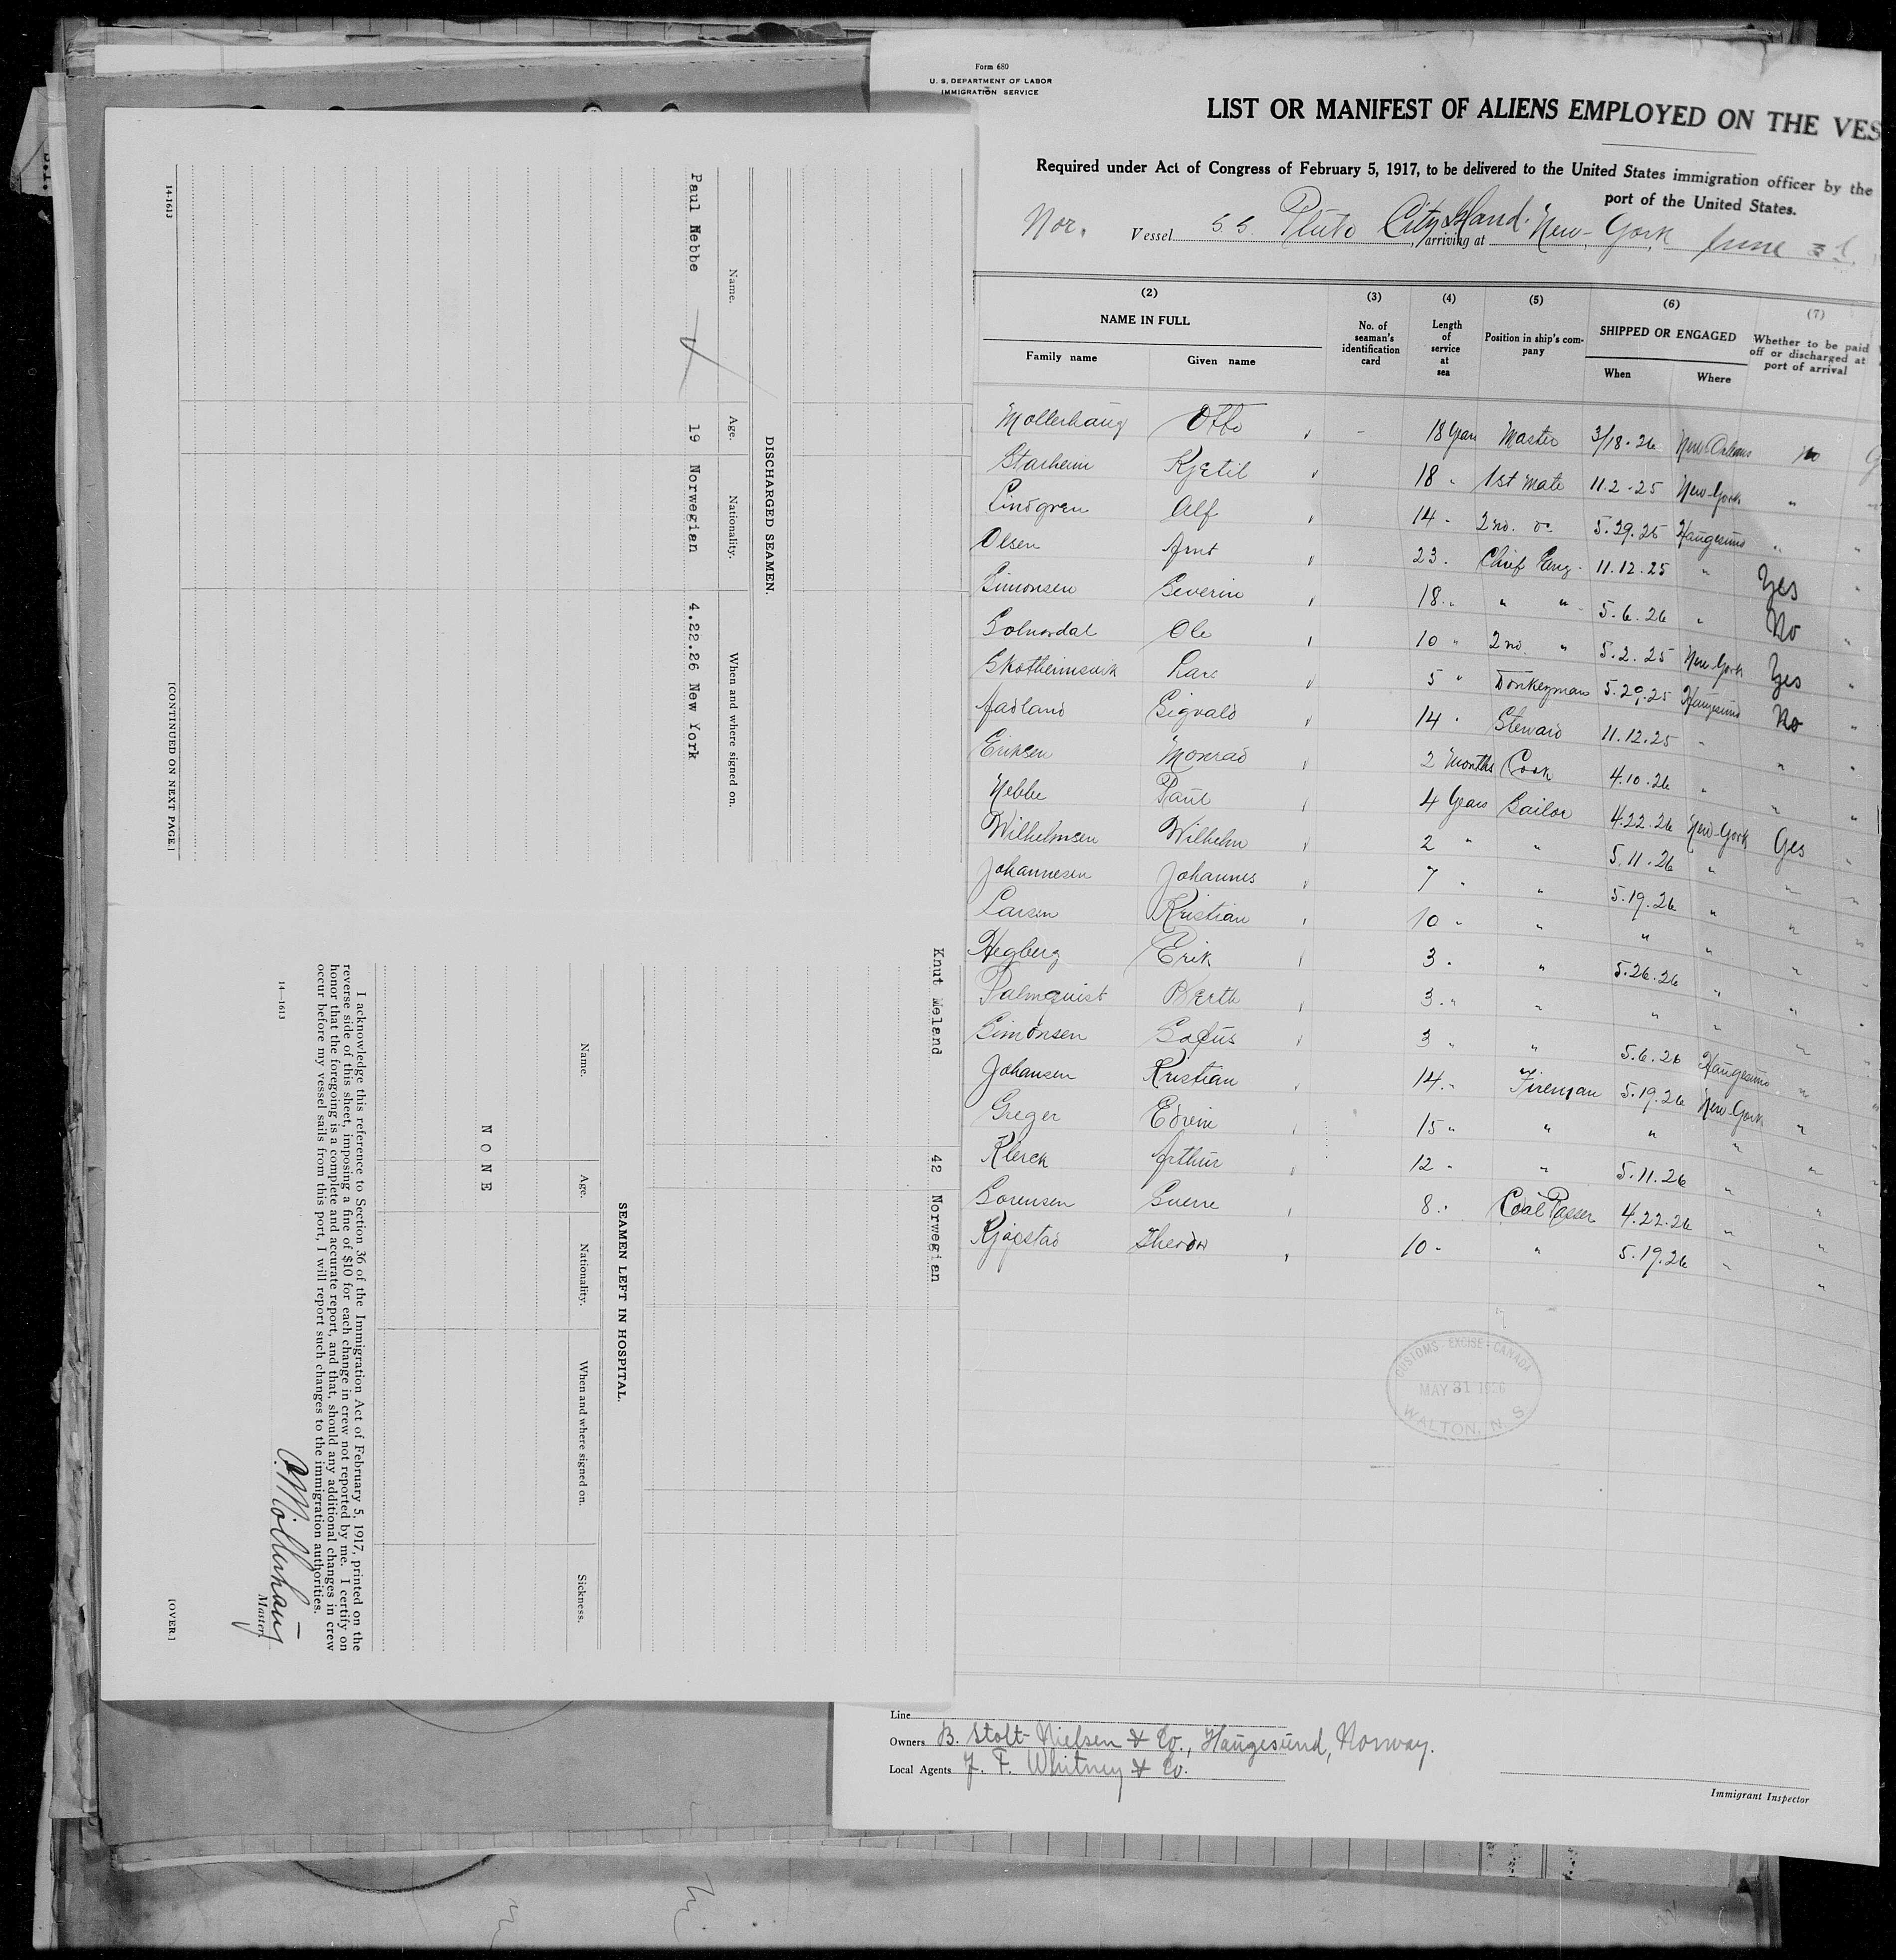 Form 680
U. S. DEPARTMENT OF LABOR
IMMIGRATION SERVICE
LIST OR MANIFEST OF ALIENS EMPLOYED ON THE VES
Required under Act of Congress of February 5, 1917, to be delivered to the United States immigration officer by the
port of the United States.
Nor. Vessel S.S. Pluto City Island. arriving at New-York, June
(2) (3) (4) (5) (6) (7)
NAME IN FULL
Family name Given name
No. of seaman's identification card
Length of service at sea
Position in ship's company
SHIPPED OR ENGAGED
When Where
Whether to be paid off or discharged at port of arrival
Mollerhaug Otto - 18 Years Master 3/18-26 New Orleans no
Starheim Kjetil 18 " 1st Mate 11.2.25 New-York "
Lindgren Alf 14 " 2nd. do 5.29.25 Haugesund "
Olsen Arnt 23 " Chief Eng. 11.12.25 " Yes
Simonsen Severin 18 " " " 5.6.26 " No
Ole 10 " 2nd. " 5.2.25 New-York Yes
Lars 5 " Donkeyman 5.29.25 Haugesund No
Aadland Sigvald 14 " Steward 11.12.25 " "
Eriksen Monrad 2 Months Cook 4.10.26 " "
Nebbe Paul 4 Years Sailor 4.22.26 New-York Yes
Wilhelmsen Wilhelm 2 " " 5.11.26 " "
Johannesen Johannes 7 " " 5.19.26 " "
Larsen Kristian 10 " " " " "
Hegberg Erik 3 " " 5.26.26 " "
Palmquist Berth 3 " " " " "
Simonsen 3 " " 5.6.26 Haugesund "
Johansen Kristian 14 " Fireman 5.19.26 New-York "
Greger Edvin 15 " " " " "
Klerck Arthur 12 " " 5.11.26 " "
Sorensen Sverre 8 " Coal Passer 4.22.26 " "
10 " " 5.19.26 " "
CUSTOMS - EXCISE - CANADA
MAY 31 1926
WALTON, N. S.
Line
Owners B. Stolt-Nielsen & Co., Haugesund, Norway.
Local Agents J. F. Whitney & Co.
Immigrant Inspector
Knut Meland 42 Norwegian
DISCHARGED SEAMEN.
Name. Age. Nationality. When and where signed on.
Paul Nebbe 19 Norwegian 4.22.26 New York
14-1613 [CONTINUED ON NEXT PAGE.]
SEAMEN LEFT IN HOSPITAL.
Name. Age. Nationality. When and where signed on. Sickness.
N O N E
I acknowledge this reference to Section 36 of the Immigration Act of February 5, 1917, printed on the
reverse side of this sheet, imposing a fine of $10 for each change in crew not reported by me. I certify on
honor that the foregoing is a complete and accurate report, and that, should any additional changes in crew
occur before my vessel sails from this port, I will report such changes to the immigration authorities.
14—1613
O. Mollerhaug
Master.
[OVER.]